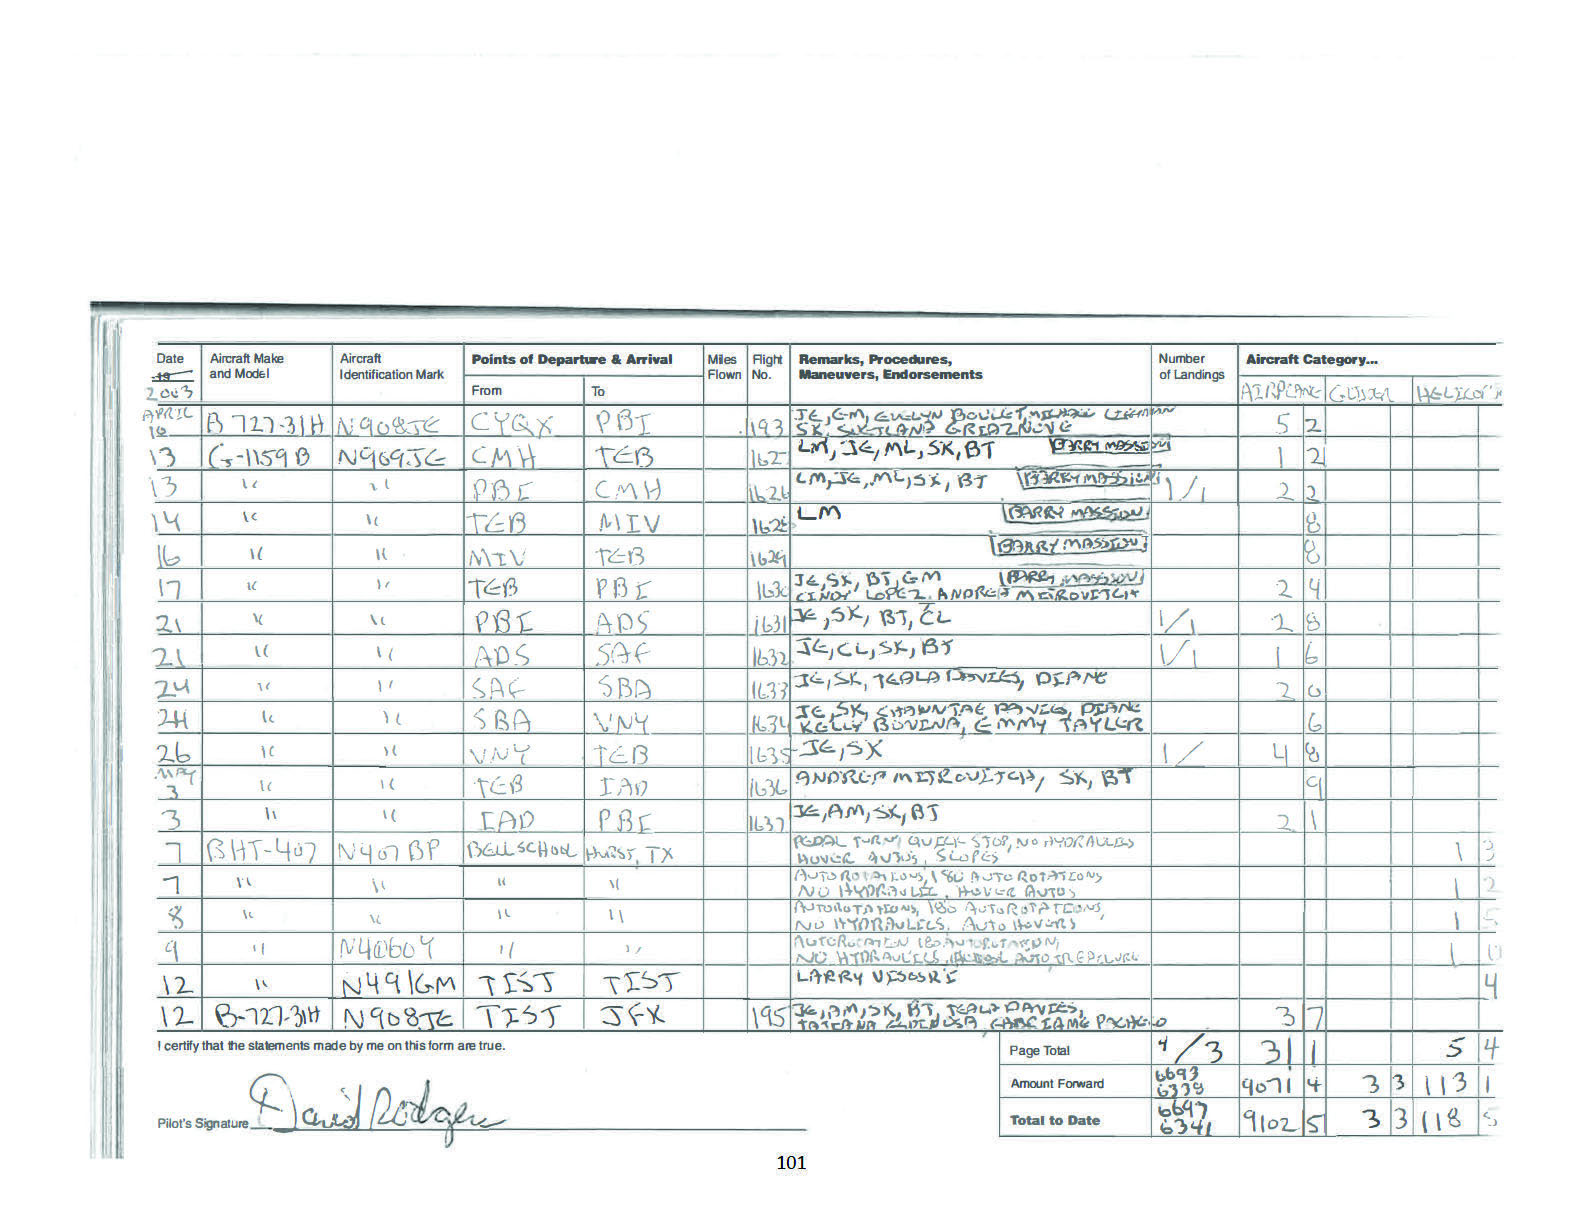 Date Aircraft Make and Model Aircraft Identification Mark Points of Departure & Arrival From To Miles Flown Flight No. Remarks, Procedures, Maneuvers, Endorsements Number of Landings Aircraft Category...
19
2003 AIRPLANE GLIDER
APRIL
10 B 727-31H N908JE CYQX PBI 193 JE, GM, EVELYN BOULLET, 5 2
SK, SVETLANA GRIAZNOVE
13 G-1159B N909JE CMH TEB 1627 LM, JE, ML, SK, BT BARRY MASSION 1 2
13 " " PBI CMH 1626 LM, JE, ML, SK, BT BARRY MASSION 1/1 2 2
14 " " TEB MIV 1628 LM BARRY MASSION 8
16 " " MIV TEB 1629 BARRY MASSION 8
17 " " TEB PBI 1630 JE, SK, BT, GM BARRY MASSION 2 4
CINDY LOPEZ, ANDREA MITROVITCH
21 " " PBI ADS 1631 JE, SK, BT, CL 1/1 2 8
21 " " ADS SAF 1632 JE, CL, SK, BT 1/1 1 6
24 " " SAF SBA 1633 JE, SK, TEALA DAVIES, DIANE 2 0
24 " " SBA VNY 1634 JE, SK, CHAWNTAE DAVIES, DIANE 6
KELLY BOVINA, EMMY TAYLER
26 " " VNY TEB 1635 JE, SK 1/ 4 8
MAY
3 " " TEB IAD 1636 ANDREA MITROVITCH, SK, BT 9
3 " " IAD PBI 1637 JE, AM, SK, BT 2 1
7 BHT-407 N407BP BELL SCHOOL HURST, TX PEDAL TURN, QUICK STOP, NO HYDRAULICS 1 3
HOVER AUTOS, SLOPES
7 " " " " AUTOROTATIONS, 180 AUTOROTATIONS 1 2
NO HYDRAULIC, HOVER AUTOS
8 " " " " AUTOROTATIONS, 180 AUTOROTATIONS, 1 5
NO HYDRAULICS, AUTO HOVERS
9 " N4060Y " " AUTOROTATION 180 AUTOROTATION, 1 0
NO HYDRAULICS,
12 " N491GM TIST TIST LARRY VISOSKI 4
12 B-727-31H N908JE TIST JFK 195 JE, AM, SK, BT, TEALA DAVIES, 3 7
TATIANA
I certify that the statements made by me on this form are true.
Page Total 4/3 31 1 5 4
Amount Forward 6693 6338 9071 4 3 3 113 1
Total to Date 6697 6341 9102 5 3 3 118 5
Pilot's Signature David Rodgers
101